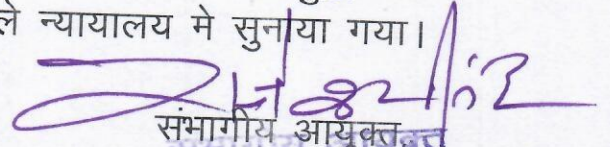 ले न्यायालय मे सुनाया गया।
संभागीय आयुक्त